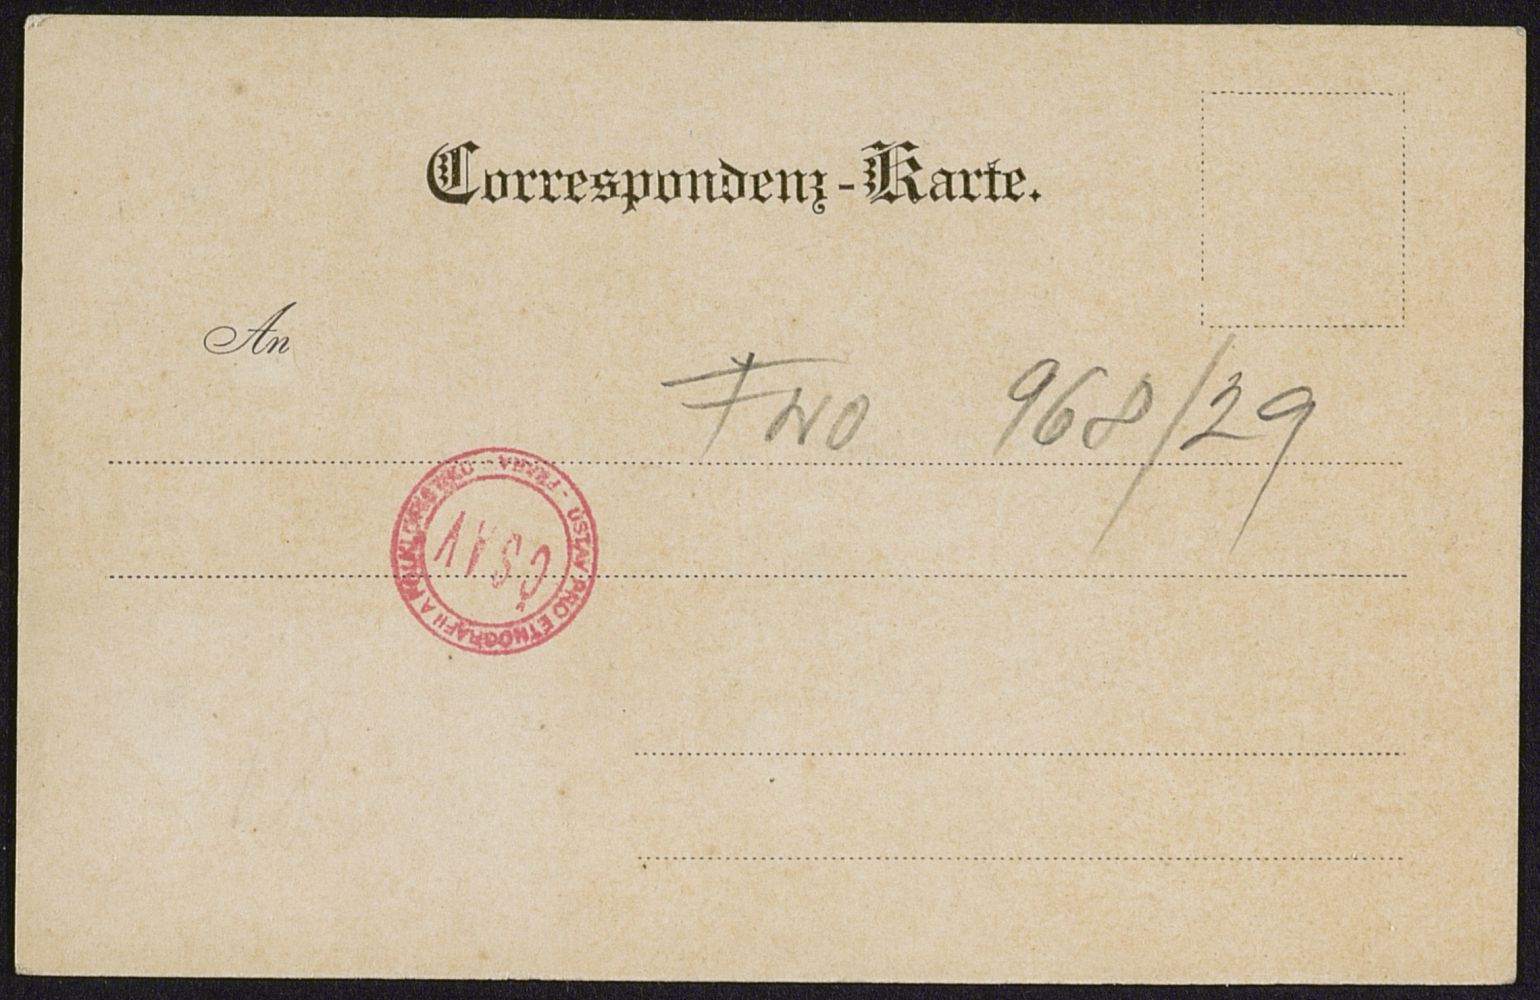 Correspondenz-Karte.
An
FWO 968/29
ÚSTAV PRO ETNOGRAFII A FOLKLORISTIKU - PRAHA -
ČSAV